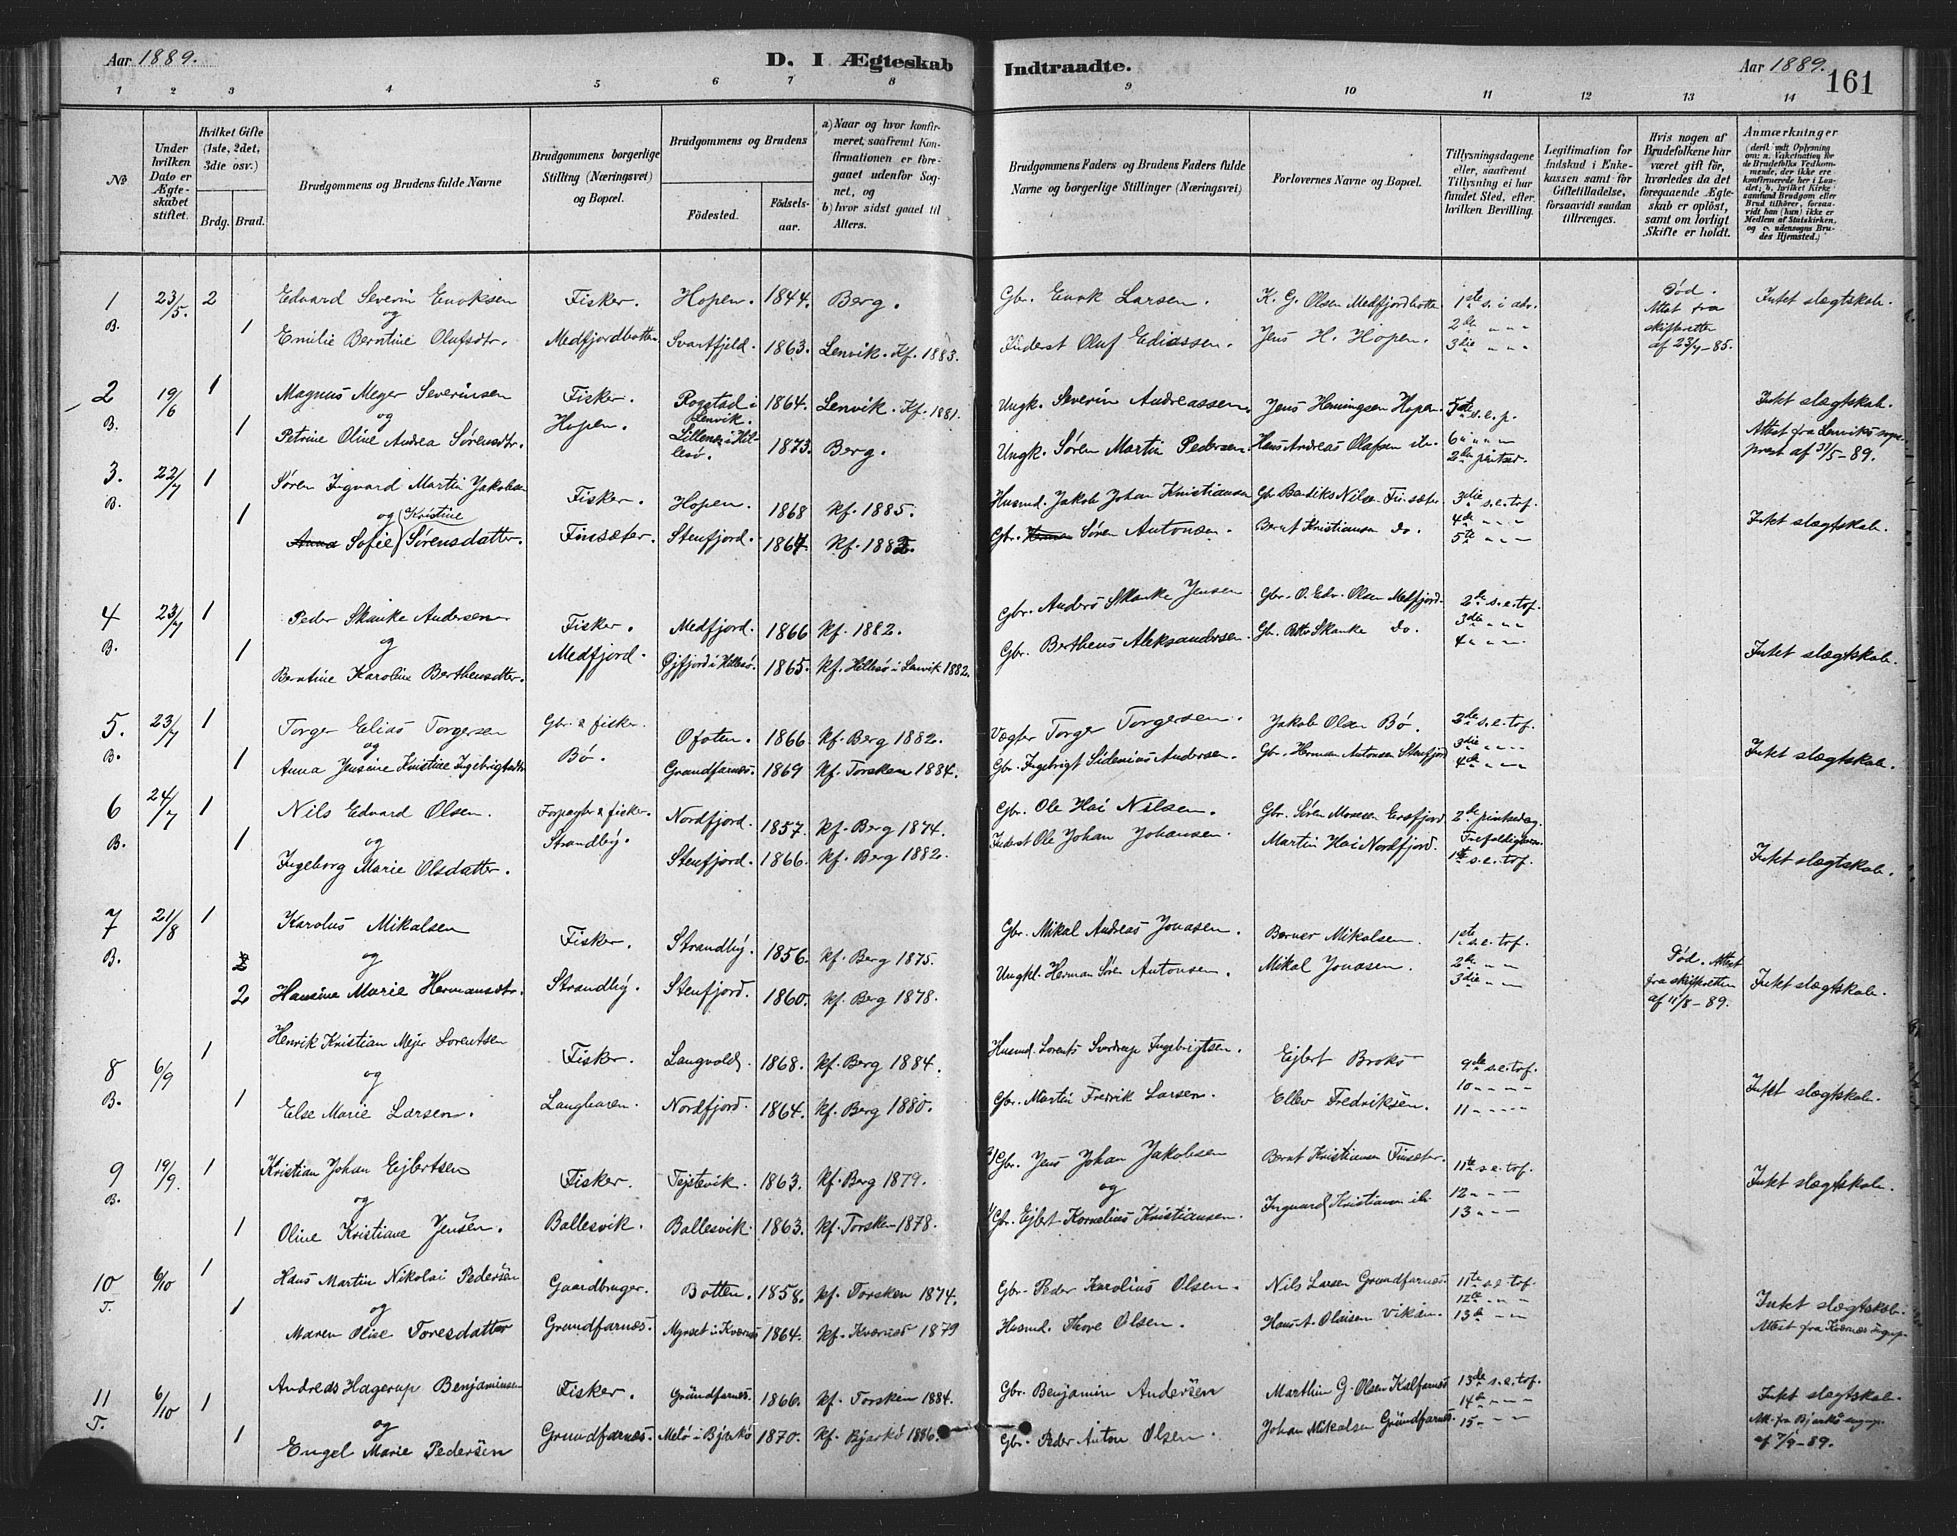 Aar 1889.
D. I Ægteskab
Indtraadte.
Aar 1889.
161
1 2 3 4 5 6 7 8 9 10 11 12 13 14
No
Under hvilken Dato er Ægteskabet stiftet.
Hvilket Gifte (1ste, 2det, 3die osv.)
Brdg. Brud.
Brudgommens og Brudens fulde Navne
Brudgommens borgerlige Stilling (Næringsvei) og Bopæl.
Brudgommens og Brudens
Fødested.
Fødselsaar.
a) Naar og hvor konfirmeret, saafremt Konfirmationen er foregaaet udenfor Sognet, og
b) hvor sidst gaaet til Alters.
Brudgommens Faders og Brudens Faders fulde Navne og borgerlige Stillinger (Næringsvei)
Forlovernes Navne og Bopæl.
Tillysningsdagene eller, saafremt Tillysning ei har fundet Sted, efter hvilken Bevilling.
Legitimation for Indskud i Enkekassen samt for Giftetilladelse, forsaavidt saadan tiltrænges.
Hvis nogen af Brudefolkene har været gift før, hvorledes da det foregaaende Ægteskab er opløst, samt om lovligt Skifte er holdt.
Anmærkninger
1 23/5. 2 Edvard Severin Enoksen Fisker. Hopen. 1844. Berg. Gbr. Enok Larsen. K. G. Olsen Medfjordbotn 1ste s. i adv. Død. Intet slægtskab.
B. og 2de " " Attest fra
1 Emilie Berntine Olafsdtr. Medfjordbotten Svartfjeld. 1863. Lenvik. Kf. 1883. Inderst Olaf Ediassen. Jens H. Hopen. 3die " " skifteretten af 23/7-85.
2 19/6 1 Magnus Meyer Severinsen Fisker. Rogstad i Lenvik. 1864. Lenvik. Kf. 1881. Ungk. Severin Andreassen. Jens Henningsen Hopen 5te s. e. p. Intet slægtskab.
B. og Hopen. Attest fra Lenviks sogneprest af 31/5-89.
1 Petrine Oline Andrea Sørensdtr. Hillesø. 1873. Berg. Ungk. Søren Martin Pedersen. Hans Andreas Olafsen 2den pintsed.
3. 22/7 1 Søren Ingvard Martin Jakobsen Fisker. Hopen. 1868 Kf. 1885. Husmd. Jakob Johan Kristiansen Gbr. Bendiks Nilsen Finsæter 3die s. e. tref.
B. og Kristine 4de " "
1 Anna Sofie Sørensdatter. Finsæter. Stenfjord. 1867 Kf. 1882. Gbr. Herman Søren Antonsen. Bernt Kristiansen do. 5te " " Intet slægtskab.
4 23/7 1 Peder Skanke Andersen Fisker. Medfjord. 1866 Kf. 1882. Gbr. Anders Skanke Jensen Gbr. O. Edv. Olsen Medfjord. 2de s. e. tref.
B. og 3die " "
1 Berntine Karoline Bertheusdatter. Medfjord. Øjfjord i Hillesø. 1865. Kf. Hillesø i Lenvik 1882. Gbr. Bertheus Aleksandersen. Gbr. Skanke do. 4 " " Intet slægtskab.
5. 23/7 1 Torger Elias Torgersen Gbr. & fisker. Ofoten. 1866. Kf. Berg 1882. Vægter Torger Torgersen. Jakob Olsen Bø. 2de s. e. tref.
B. og 3die " "
1 Anna Jensine Kristine Ingebrigtsdtr. Bø. Grundfarnes. 1869 Kf. Torsken 1884. Gbr. Ingebrigt Sidenius Andersen. Gbr. Herman Antonsen Stenfjord 4de " " Intet slægtskab.
6 24/7 1 Nils Edvard Olsen. Forpagter & fisker. Nordfjord. 1857. Kf. Berg 1874. Gbr. Ole Hai Nilsen. Gbr. Søren Ersfjord 2de pintsedag.
B. og
1 Ingeborg Marie Olsdatter. Strandby. Stenfjord. 1866. Kf. Berg 1882. Inderst Ole Johan Johansen. Martin Hai Nordfjord. 1ste s. e. tref. Intet slægtskab.
7 21/8 1 Karolus Mikalsen Fisker. Strandby. 1856. Kf. Berg 1875. Gbr. Mikal Andreas Jonasen. Berner Mikalsen. 1ste s. e. tref. Død. Attest
B. 2 og 2de " "
2 Hansine Marie Hermansdtr. Strandby. Stenfjord. 1860. Kf. Berg 1878. Ungkl. Herman Søren Antonsen. Mikal Jonasen. 3die " " fra skifteretten af 11/8-89. Intet slægtskab.
8 6/9 1 Henrik Kristian Mejer Lorentsen Fisker. Langvold. 1868. Kf. Berg 1884. Husmd. Lorents Sverdrup Ingebrigtsen. Ejlert Broks 9de s. e. tref.
B. og 10 " "
1 Else Marie Larsen. Langharen. Nordfjord. 1864. Kf. Berg 1880. Gbr. Martin Fredrik Larsen. Ellev Fredriksen. 11 " " Intet slægtskab.
9 19/9. 1 Kristian Johan Ejlertsen Fisker. Tejstevik. 1863. Kf. Berg 1879. 2) Gbr. Jens Johan Jakobsen Bernt Kristiansen Finsæter. 11te s. e. tref. Intet slægtskab.
B. og og 12 " "
1 Oline Kristiane Jensen. Ballesvik. Ballesvik. 1863. Kf. Torsken 1878. 1) Gbr. Ejlert Kornelius Kristiansen. Ingvard Kristiansen ib. 13 " "
10 6/10 1 Hans Martin Nikolai Pedersen Gaardbruger. Botten. 1858. Kf. Torsken 1874. Gbr. Peder Karolius Olsen. Nils Larsen Grundfarnes. 11te s. e. tref.
T. og 12te " " Intet slægtskab.
1 Maren Oline Toresdatter Grundfarnes. Myrset i Kvernes 1864. Kf. Kvernes 1879 Husmd. Thore Olsen. Hans A. Olaisen Vikan. 13de " " Attest fra Kvernes sogn.
11 6/10 1 Andreas Hagerup Benjaminsen Fisker. Grundfarnes. 1866. Kf. Torsken 1884. Gbr. Benjamin Andersen Marthin G. Olsen Kalfarnes 13de s. e. tref. Intet slægtskab.
T. og 14de " "
1 Engel Marie Pedersen Grundfarnes. Melø i Bjarkø 1870. Kf. Bjarkø 1886. Gbr. Peder Anton Olsen. Johan Mikalsen Grundfarnes. 15 " " Att. fra Bjarkø sogn. af 7/9-89.